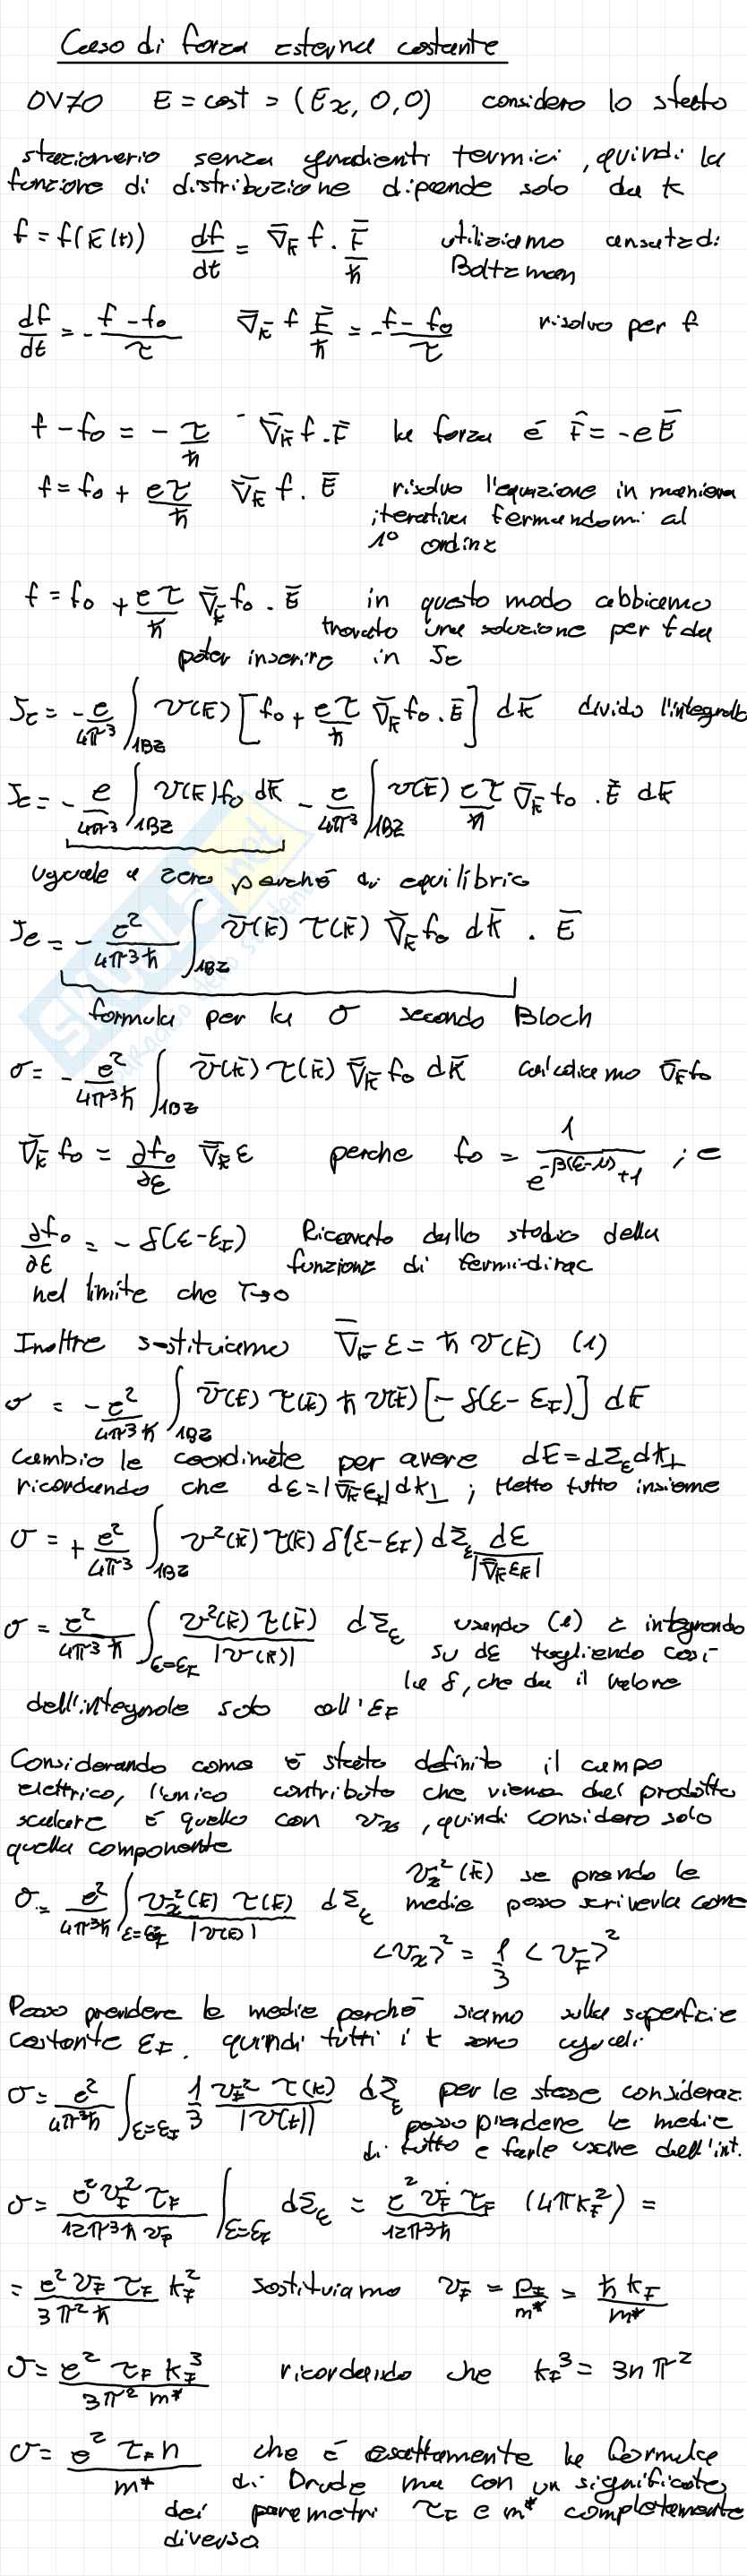 Caso di forza esterna costante
OVVO E = cost = (Ex, 0, 0) considero lo stato
stazionario senza gradienti termici, quindi la
funzione di distribuzione dipende solo da k
f = f(k̄(t)) df/dt = ∇̄_k̄ f · F̄/ħ utilizziamo ansatz di
Boltzman
df/dt = - (f - f₀)/τ ∇̄_k̄ f F̄/ħ = - (f - f₀)/τ risolvo per f
f - f₀ = - τ/ħ ∇̄_k̄ f · F̄ la forza é F̄ = -e Ē
f = f₀ + eτ/ħ ∇̄_k̄ f · Ē risolvo l'equazione in maniera
iterativa fermandomi al
1° ordine
f = f₀ + eτ/ħ ∇̄_k̄ f₀ · Ē in questo modo abbiamo
trovato una soluzione per f da
poter inserire in Je
Je = - e/4π³ ∫_1BZ v(k̄) [f₀ + eτ/ħ ∇̄_k̄ f₀ · Ē] dk̄ divido l'integrale
Je = - e/4π³ ∫_1BZ v(k̄) f₀ dk̄ - e/4π³ ∫_1BZ v(k̄) eτ/ħ ∇̄_k̄ f₀ · Ē dk̄
uguale a zero perché di equilibrio
Je = - e²/4π³ħ ∫_1BZ v̄(k̄) τ(k̄) ∇̄_k̄ f₀ dk̄ · Ē
formula per la σ secondo Bloch
σ = - e²/4π³ħ ∫_1BZ v̄(k̄) τ(k̄) ∇̄_k̄ f₀ dk̄ calcoliamo ∇̄_k̄ f₀
∇̄_k̄ f₀ = ∂f₀/∂ε ∇̄_k̄ ε perche f₀ = 1/(e^{-β(ε-μ)}+1) ; e
∂f₀/∂ε = - δ(ε-ε_F) Ricavato dallo studio della
funzione di fermi-dirac
nel limite che T→0
Inoltre sostituiamo ∇̄_k̄ ε = ħ v(k̄) (1)
σ = - e²/4π³ħ ∫_1BZ v̄(k̄) τ(k̄) ħ v(k̄) [- δ(ε - ε_F)] dk̄
Cambio le coordinate per avere dk̄ = dΣ_ε dk⊥
ricordando che dε = |∇̄_k̄ ε_k| dk⊥ ; Metto tutto insieme
σ = + e²/4π³ ∫_1BZ v²(k̄) τ(k̄) δ(ε-ε_F) dΣ_ε dε/|∇̄_k̄ ε_k̄|
σ = e²/4π³ħ ∫_ε=ε_F v²(k̄) τ(k̄)/|v(k)| dΣ_ε usando (1) e integrando
su dε togliendo così
la δ, che da il valore
dell'integrale solo all'ε_F
Considerando come è stato definito il campo
elettrico, l'unico contributo che viene dal prodotto
scalare é quello con vx, quindi considero solo
quella componente
σ = e²/4π³ħ ∫_ε=ε_F v_x²(k̄) τ(k̄)/|v(k̄)| dΣ_ε v_x²(k̄) se prendo le
medie posso scriverla come
<v_x>² = 1/3 <v_F>²
Posso prendere le medie perché siamo sulla superficie
costante ε_F. quindi tutti i k sono uguali
σ = e²/4π³ħ ∫_ε=ε_F 1/3 v_F² τ(k)/|v(k)| dΣ_ε per le stesse consideraz.
posso prendere le medie
di tutto e farle uscire dall'int.
σ = e² v_F² τ_F/12π³ħ v_F ∫_ε=ε_F dΣ_ε = e² v_F τ_F/12π³ħ (4πk_F²) =
= e² v_F τ_F k_F²/3π²ħ Sostituiamo v_F = p_F/m* = ħk_F/m*
σ = e² τ_F k_F³/3π² m* ricordando che k_F³ = 3nπ²
σ = e² τ_F n/m* che é esattamente la formula
di Drude ma con un significato
dei parametri τ_F e m* completamente
diverso